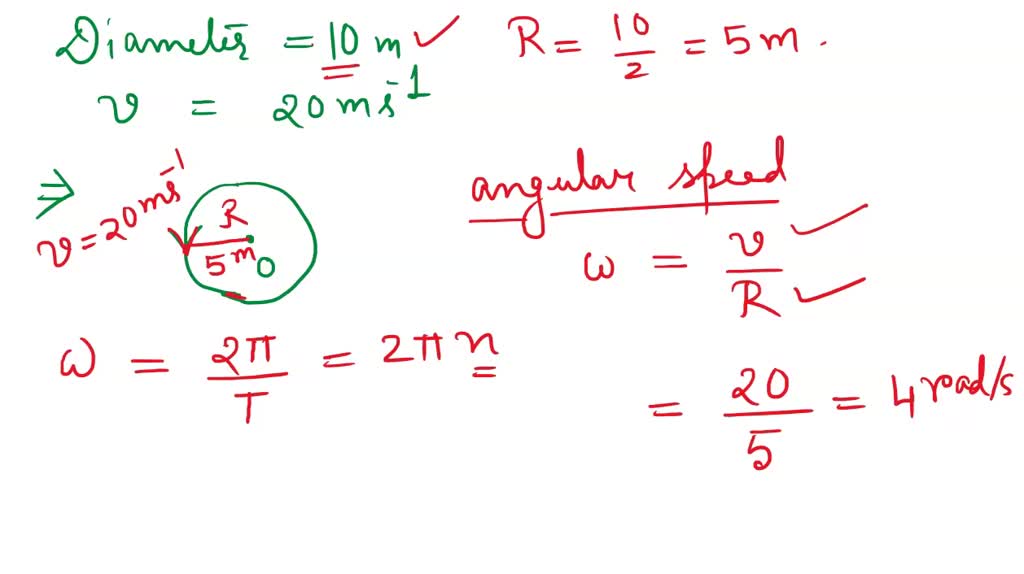 Diameter = 10 m ✓ R = 10/2 = 5 m .
v = 20 ms⁻¹
⇒ v = 20 ms⁻¹
R
5 m O
angular speed
ω = v/R
ω = 2π/T = 2π n
= 20/5 = 4 rad/s